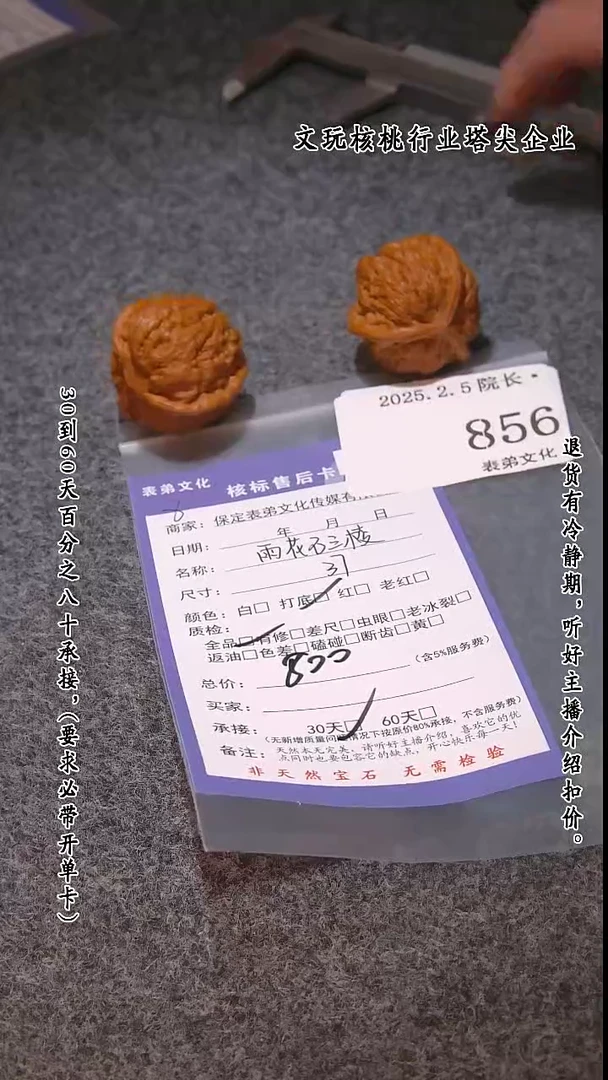 文玩核桃行业塔尖企业
30到60天百分之八十承接，（要求必带开单卡）
退货有冷静期，听好主播介绍扣价。
2025.2.5院长·
856
表弟文化
表弟文化 核标售后卡
商家：保定表弟文化传媒有
日期： 年 月 日
名称：雨花石三棱
尺寸：31
颜色：白□ 打底□ 红□ 老红□
质检：
全品□有修□差尺□虫眼□老冰裂□
返油□色差□磕碰□断齿□黄□
总价：800（含5%服务费）
买家：
承接：30天□ 60天□
（无新增质量问 情况下按原价80%承接，不含服务费）
备注：天然本无完美，请听好主播介绍，喜欢它的优
点同时也要包容它的缺点，开心快乐每一天！
非天然宝石 无需检验